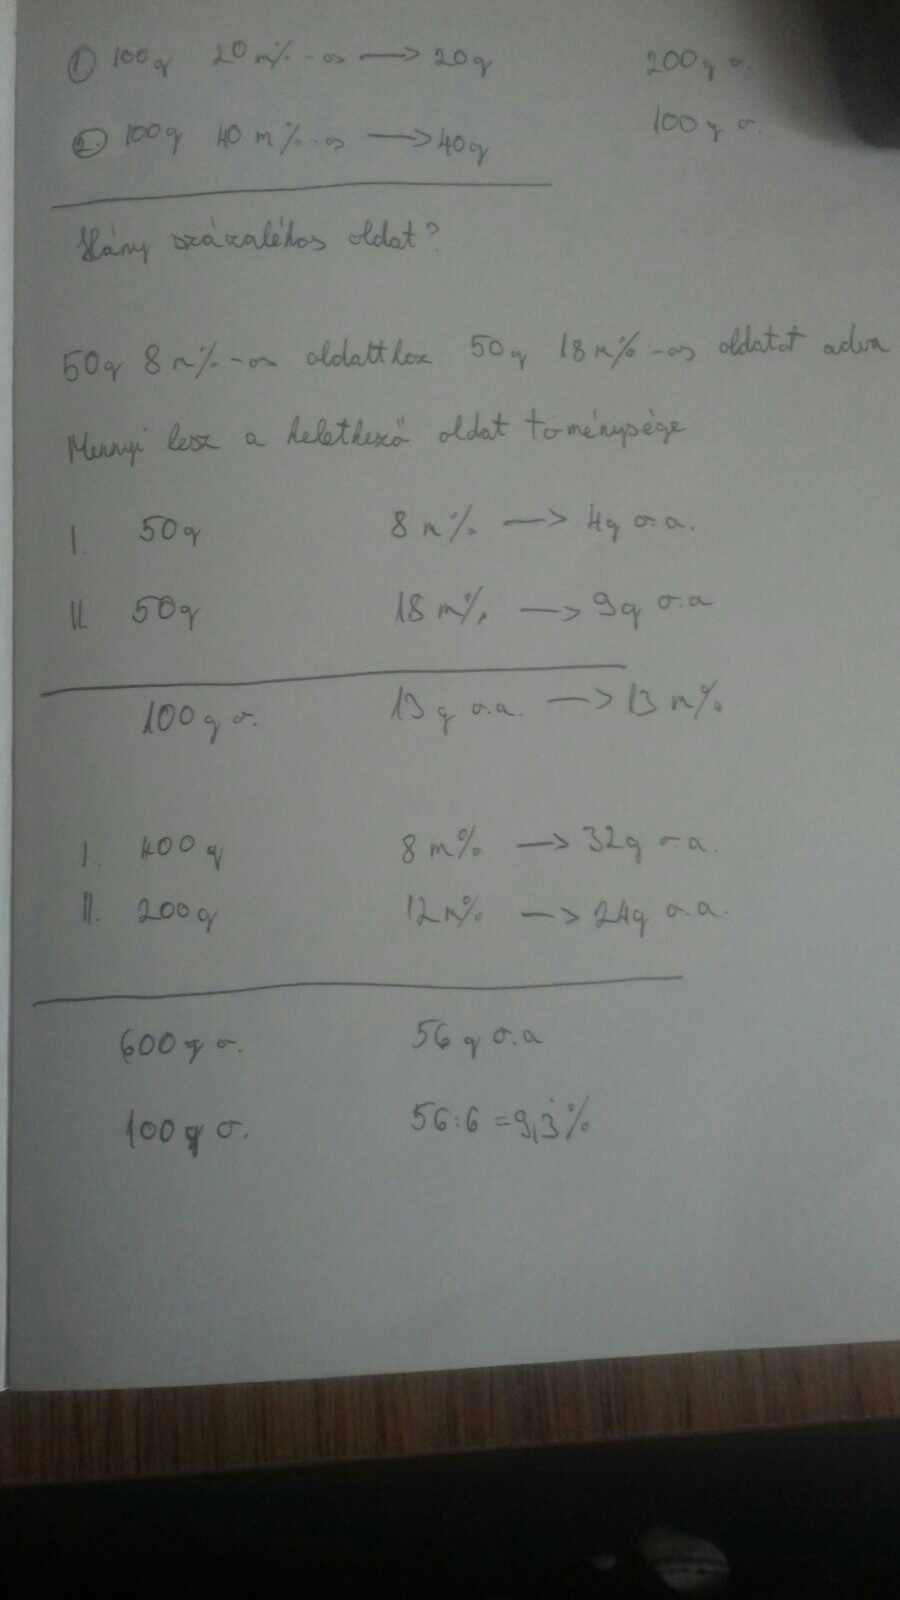 ① 100g 20 m%-os → 20g 200g o.
②. 100g 40 m%-os → 40g 100g o.
Hány százalékos oldat?
50g 8 m%-os oldatthoz 50g 18 m%-os oldatot adva
Mennyi lesz a keletkező oldat töménysége
I. 50g 8 m% → 4g o.a.
II. 50g 18 m% → 9g o.a
100g o. 13g o.a. → 13 m%
I. 400g 8 m% → 32g o.a.
II. 200g 12 m% → 24g o.a.
600g o. 56g o.a
100g o. 56:6 = 9,3̇%